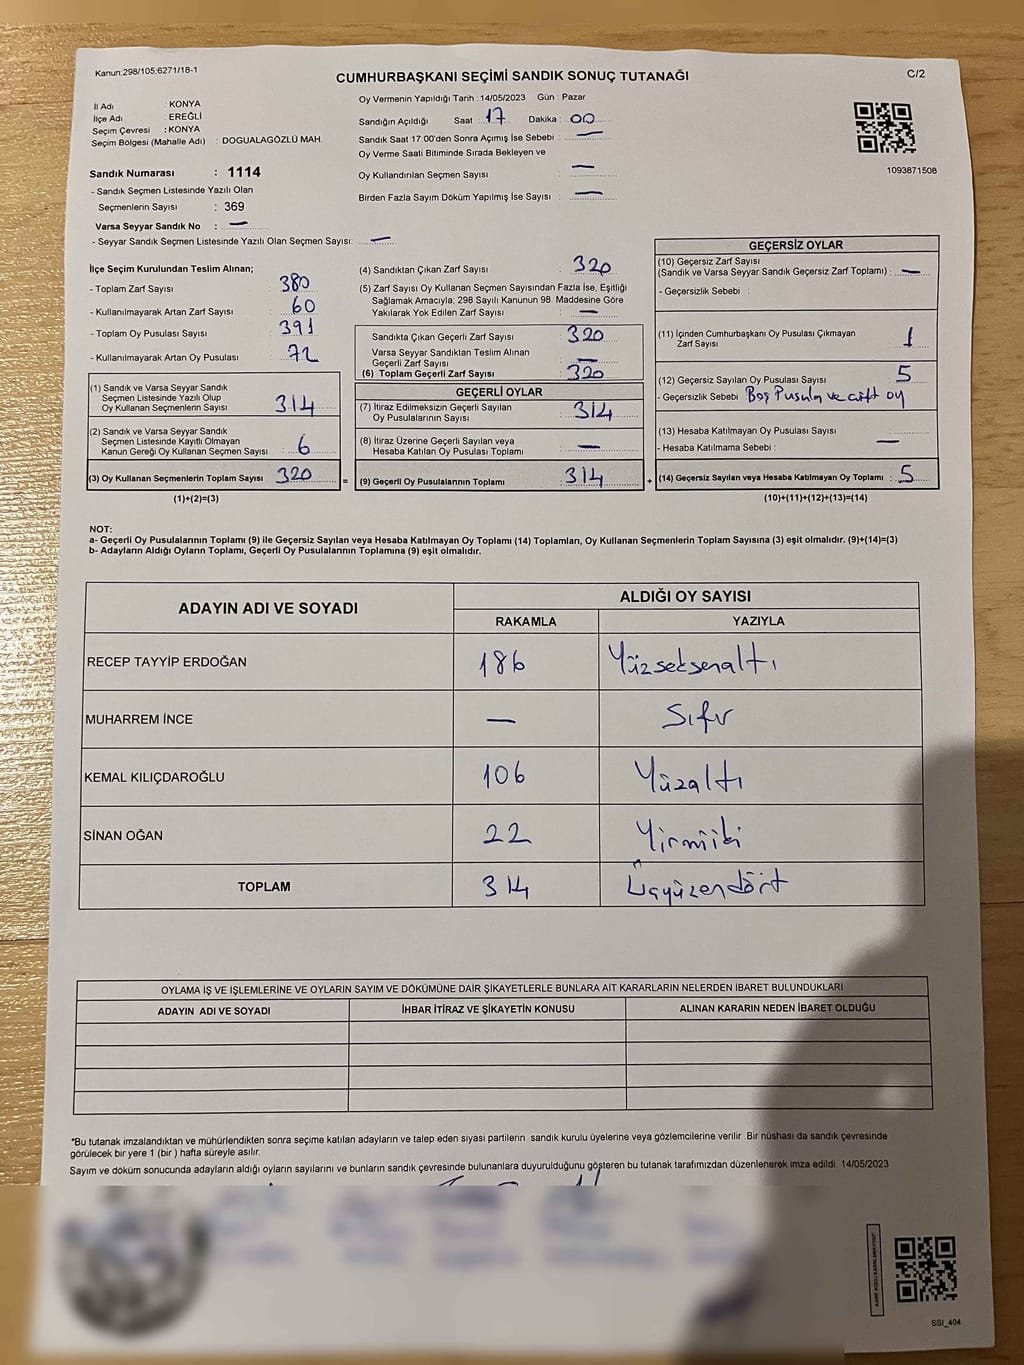 Kanun:298/105;6271/18-1
CUMHURBAŞKANI SEÇİMİ SANDIK SONUÇ TUTANAĞI
C/2
İl Adı : KONYA
İlçe Adı : EREĞLİ
Seçim Çevresi : KONYA
Seçim Bölgesi (Mahalle Adı) : DOGUALAGÖZLÜ MAH.
Sandık Numarası : 1114
- Sandık Seçmen Listesinde Yazılı Olan
Seçmenlerin Sayısı : 369
Varsa Seyyar Sandık No : —
- Seyyar Sandık Seçmen Listesinde Yazılı Olan Seçmen Sayısı: —
Oy Vermenin Yapıldığı Tarih :14/05/2023 Gün : Pazar
Sandığın Açıldığı Saat : 17 Dakika : 00
Sandık Saat 17:00'den Sonra Açımış İse Sebebi : —
Oy Verme Saati Bitiminde Sırada Bekleyen ve
Oy Kullandırılan Seçmen Sayısı : —
Birden Fazla Sayım Döküm Yapılmış İse Sayısı : —
1093871508
İlçe Seçim Kurulundan Teslim Alınan;
- Toplam Zarf Sayısı : 380
- Kullanılmayarak Artan Zarf Sayısı : 60
- Toplam Oy Pusulası Sayısı : 391
- Kullanılmayarak Artan Oy Pusulası : 72
(1) Sandık ve Varsa Seyyar Sandık
Seçmen Listesinde Yazılı Olup
Oy Kullanan Seçmenlerin Sayısı : 314
(2) Sandık ve Varsa Seyyar Sandık
Seçmen Listesinde Kayıtlı Olmayan
Kanun Gereği Oy Kullanan Seçmen Sayısı : 6
(3) Oy Kullanan Seçmenlerin Toplam Sayısı : 320
(1)+(2)=(3)
(4) Sandıktan Çıkan Zarf Sayısı : 320
(5) Zarf Sayısı Oy Kullanan Seçmen Sayısından Fazla İse, Eşitliği
Sağlamak Amacıyla; 298 Sayılı Kanunun 98. Maddesine Göre
Yakılarak Yok Edilen Zarf Sayısı : —
Sandıkta Çıkan Geçerli Zarf Sayısı : 320
Varsa Seyyar Sandıktan Teslim Alınan
Geçerli Zarf Sayısı : —
(6) Toplam Geçerli Zarf Sayısı : 320
=
GEÇERLİ OYLAR
(7) İtiraz Edilmeksizin Geçerli Sayılan
Oy Pusulalarının Sayısı : 314
(8) İtiraz Üzerine Geçerli Sayılan veya
Hesaba Katılan Oy Pusulası Toplamı : —
(9) Geçerli Oy Pusulalarının Toplamı : 314
+
GEÇERSİZ OYLAR
(10) Geçersiz Zarf Sayısı
(Sandık ve Varsa Seyyar Sandık Geçersiz Zarf Toplamı) : —
- Geçersizlik Sebebi :
(11) İçinden Cumhurbaşkanı Oy Pusulası Çıkmayan
Zarf Sayısı : 1
(12) Geçersiz Sayılan Oy Pusulası Sayısı : 5
- Geçersizlik Sebebi Boş Pusula ve çift oy
(13) Hesaba Katılmayan Oy Pusulası Sayısı : —
- Hesaba Katılmama Sebebi :
(14) Geçersiz Sayılan veya Hesaba Katılmayan Oy Toplamı : 5
(10)+(11)+(12)+(13)=(14)
NOT:
a- Geçerli Oy Pusulalarının Toplamı (9) ile Geçersiz Sayılan veya Hesaba Katılmayan Oy Toplamı (14) Toplamları, Oy Kullanan Seçmenlerin Toplam Sayısına (3) eşit olmalıdır. (9)+(14)=(3)
b- Adayların Aldığı Oyların Toplamı, Geçerli Oy Pusulalarının Toplamına (9) eşit olmalıdır.
ADAYIN ADI VE SOYADI
ALDIĞI OY SAYISI
RAKAMLA YAZIYLA
RECEP TAYYİP ERDOĞAN 186 Yüzseksenaltı
MUHARREM İNCE — Sıfır
KEMAL KILIÇDAROĞLU 106 Yüzaltı
SİNAN OĞAN 22 Yirmiiki
TOPLAM 314 Üçyüzondört
OYLAMA İŞ VE İŞLEMLERİNE VE OYLARIN SAYIM VE DÖKÜMÜNE DAİR ŞİKAYETLERLE BUNLARA AİT KARARLARIN NELERDEN İBARET BULUNDUKLARI
ADAYIN ADI VE SOYADI İHBAR İTİRAZ VE ŞİKAYETİN KONUSU ALINAN KARARIN NEDEN İBARET OLDUĞU
*Bu tutanak imzalandıktan ve mühürlendikten sonra seçime katılan adayların ve talep eden siyasi partilerin sandık kurulu üyelerine veya gözlemcilerine verilir .Bir nüshası da sandık çevresinde
görülecek bir yere 1 (bir ) hafta süreyle asılır.
Sayım ve döküm sonucunda adayların aldığı oyların sayılarını ve bunların sandık çevresinde bulunanlara duyurulduğunu gösteren bu tutanak tarafımızdan düzenlenerek imza edildi. 14/05/2023
SSI_404